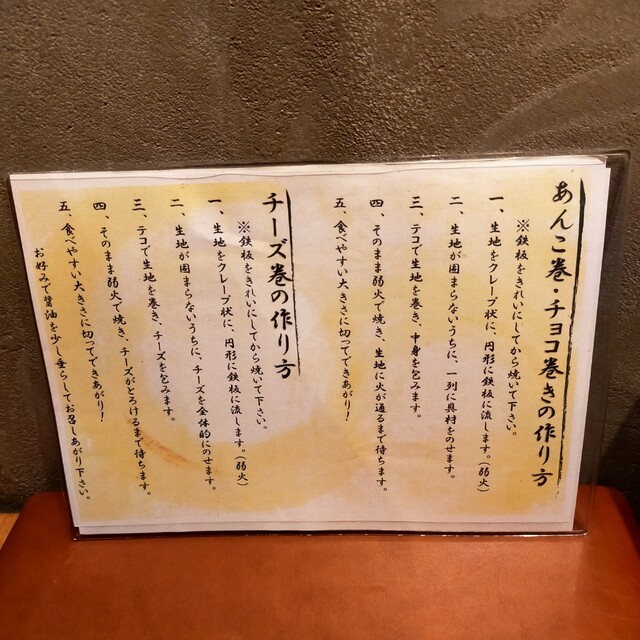 あんこ巻・チョコ巻きの作り方
※鉄板をきれいにしてから焼いて下さい。
一、生地をクレープ状に、円形に鉄板に流します。(弱火)
二、生地が固まらないうちに、一列に具材をのせます。
三、テコで生地を巻き、中身を包みます。
四、そのまま弱火で焼き、生地に火が通るまで待ちます。
五、食べやすい大きさに切ってできあがり!
チーズ巻の作り方
※鉄板をきれいにしてから焼いて下さい。
一、生地をクレープ状に、円形に鉄板に流します。(弱火)
二、生地が固まらないうちに、チーズを全体的にのせます。
三、テコで生地を巻き、チーズを包みます。
四、そのまま弱火で焼き、チーズがとろけるまで待ちます。
五、食べやすい大きさに切ってできあがり!
お好みで醤油を少し垂らしてお召しあがり下さい。